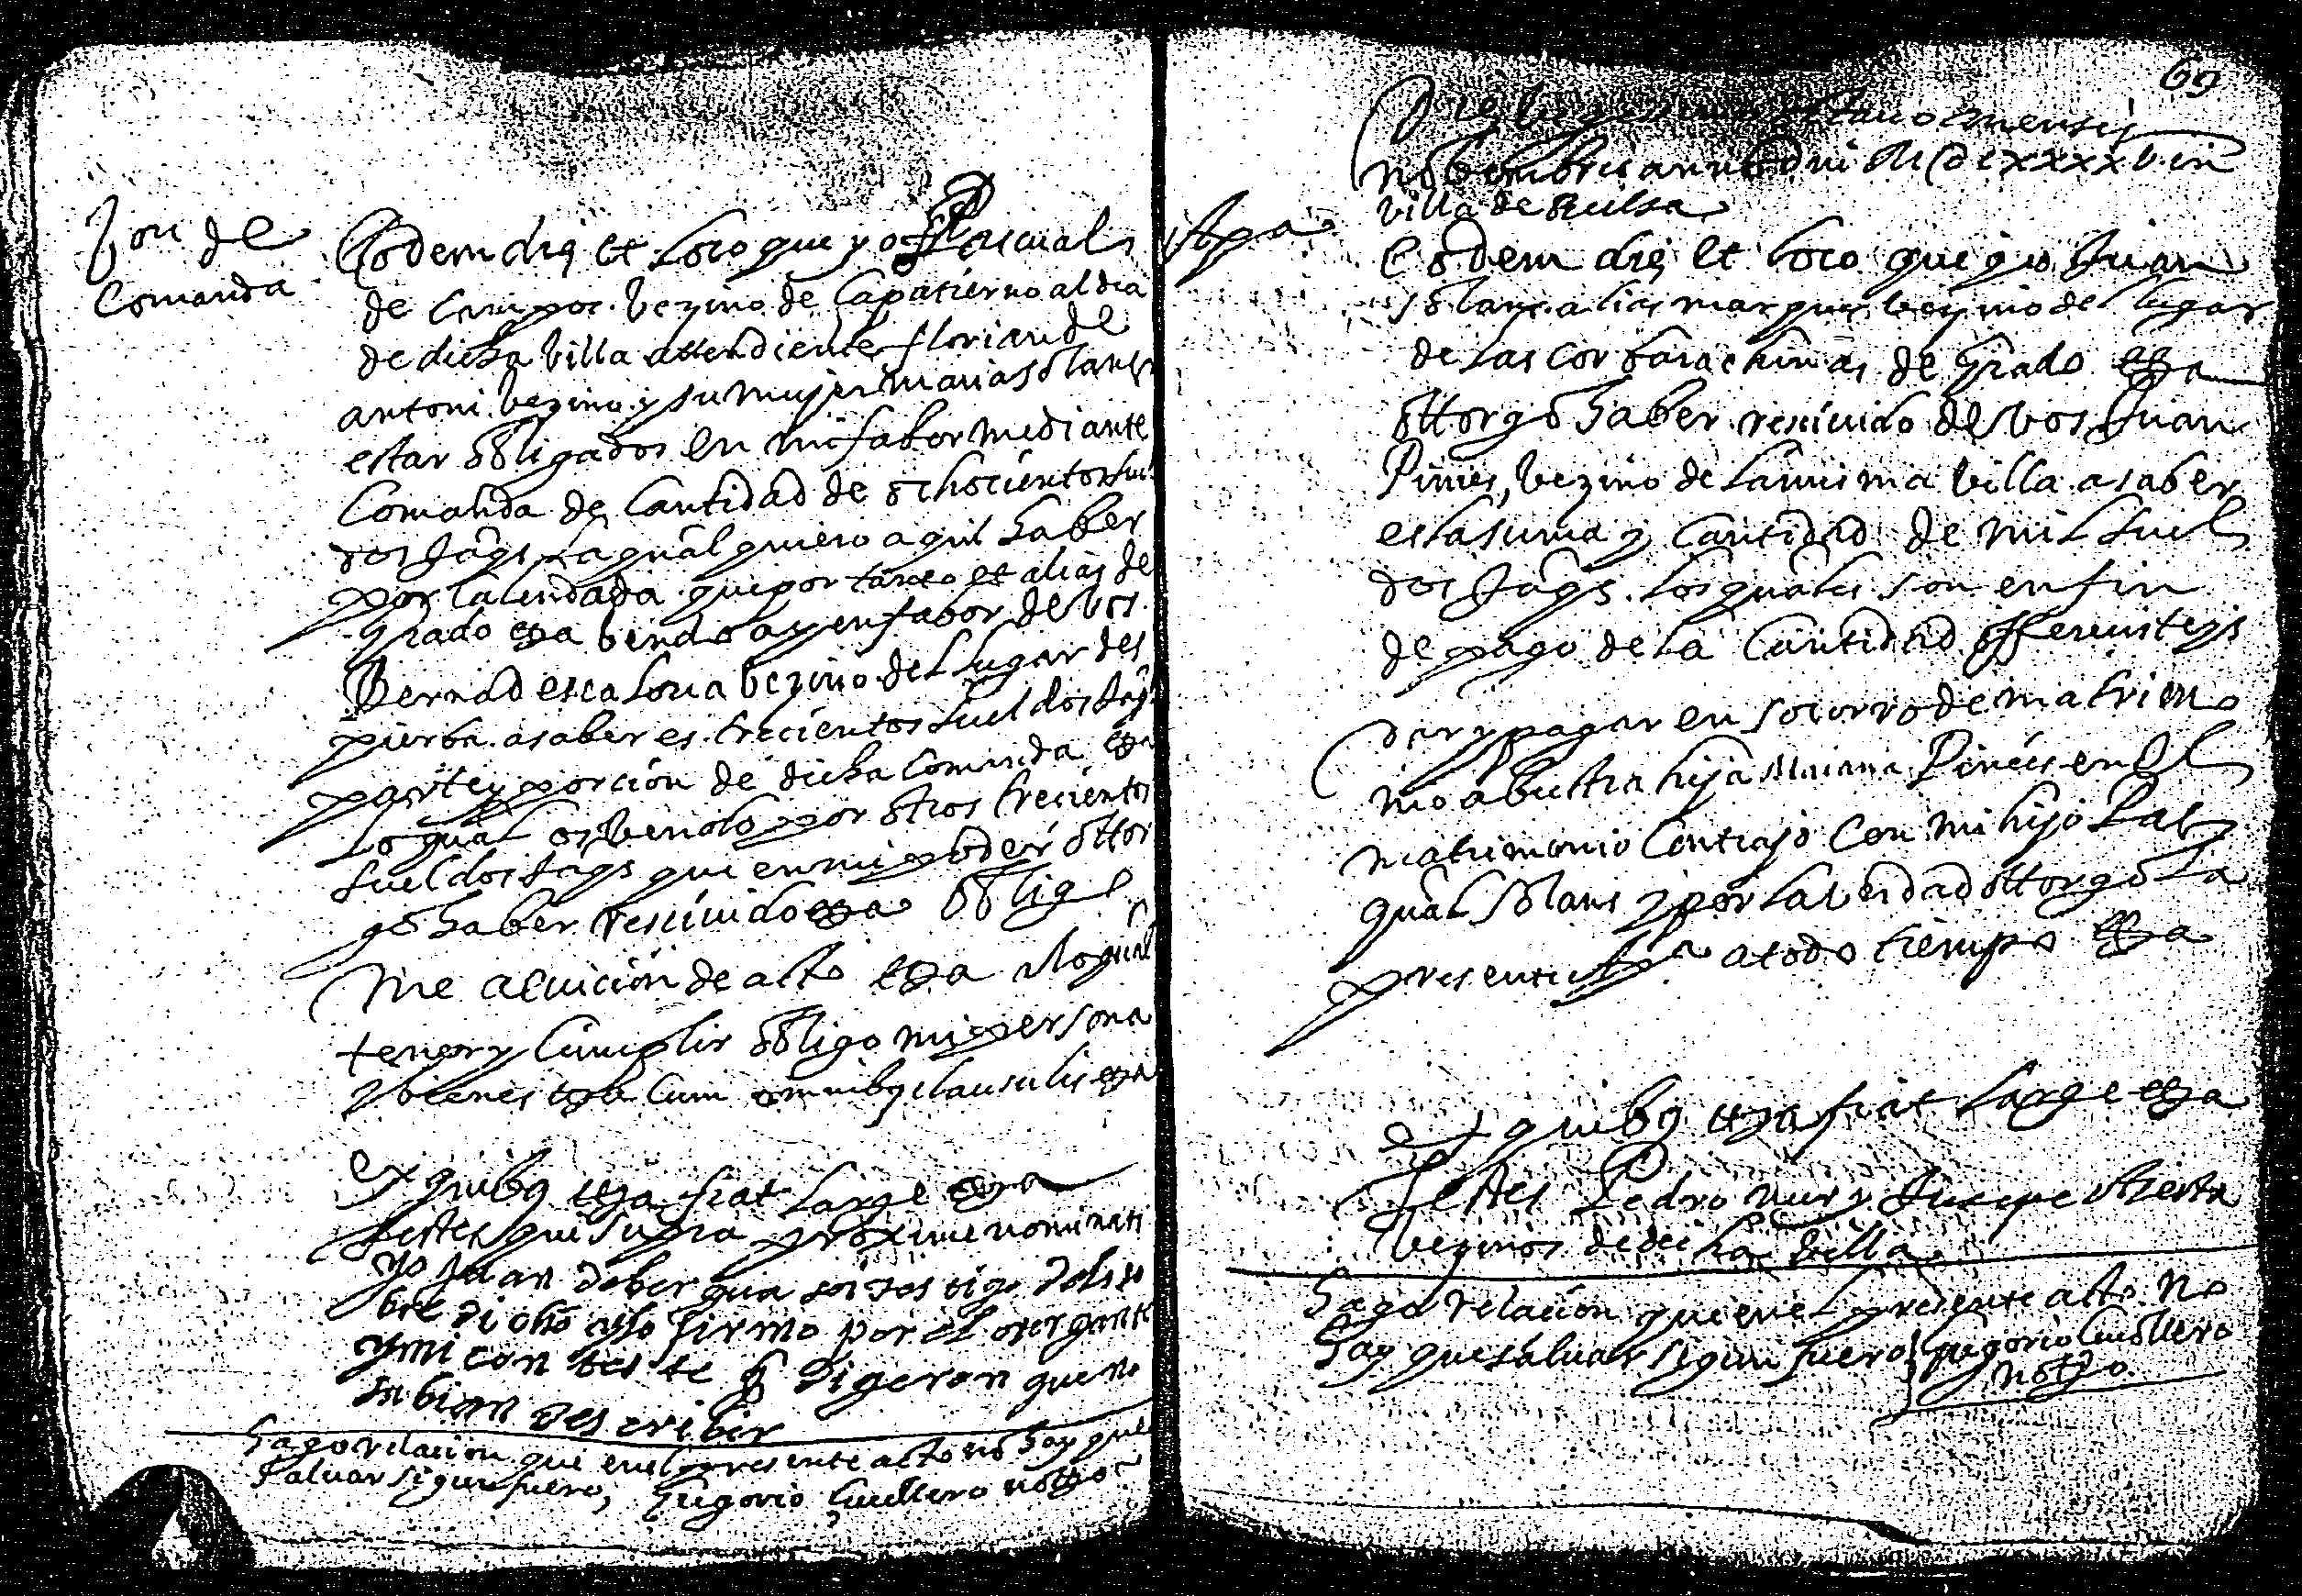 Eodem die et loco que yo Pascual
Von de
Comanda
de Campos vezino de Capatierno aldea
de dicha villa attendiente florian de
antoni vezino y su mujer maria solans
estar obligados en mi fabor mediante
Comanda de Cantidad de ochocientos suel
dos Jaqs la qual quiero aqui haber
por calendada que por tanto et alias de
grado etza bendo a y en fabor de vos
Bernad escalona bezino del lugar des
pierba a saber es trecientos sueldos Jaqs
parte y porcion de dicha Comanda etza
lo qual os bendo por otros trecientos
sueldos Jaqs que en mi poder ottor
go haber resciuido etza obligo
me a euicion de acto etza a lo qual
tener y Cumplir obligo mi persona
y bienes etza Cum omnibq clausulis etza
ex quibq etza fiat large etza
testes qui supra proxime nominati
yo Juan deber gua soi testigo del so
bre dicho y lo firmo por el otorgante
y mi con tes te q digeron que no
sabian des cribir
Hago relacion que en el presente acto no hay que
saluar sigun fuero, Gregorio Cuellero notto
69
Die bigesimo octauo mensis
nobembris anno dni M DC xxxx v in
villa de
Apa
Eodem die et loco que yo Juan
solans alias marques bezino del lugar
de las Cor de grado etza
ottorgo haber resciuido de vos Juan
Pinies, bezino de la misma villa a saber
es la suma y Cantidad de mil suel
dos Jaqs los quales son en fin
de pago de la Cantidad offerecisteys
dar y pagar en socorro de matrimo
nio a buestra hija Mariana Pinies en el
matrimonio Contrajo Con mi hijo Pas
qual solans y por la berdad ottorgo la
presente Apa a todo tiempo etza
ex quibq etza fiat large etza
Testes Pedro mur y Jusepe
bezinos de dicha villa
Hago relacion que en el presente acto no
hay que saluar sigun fuero, Gregorio Cuellero
notto